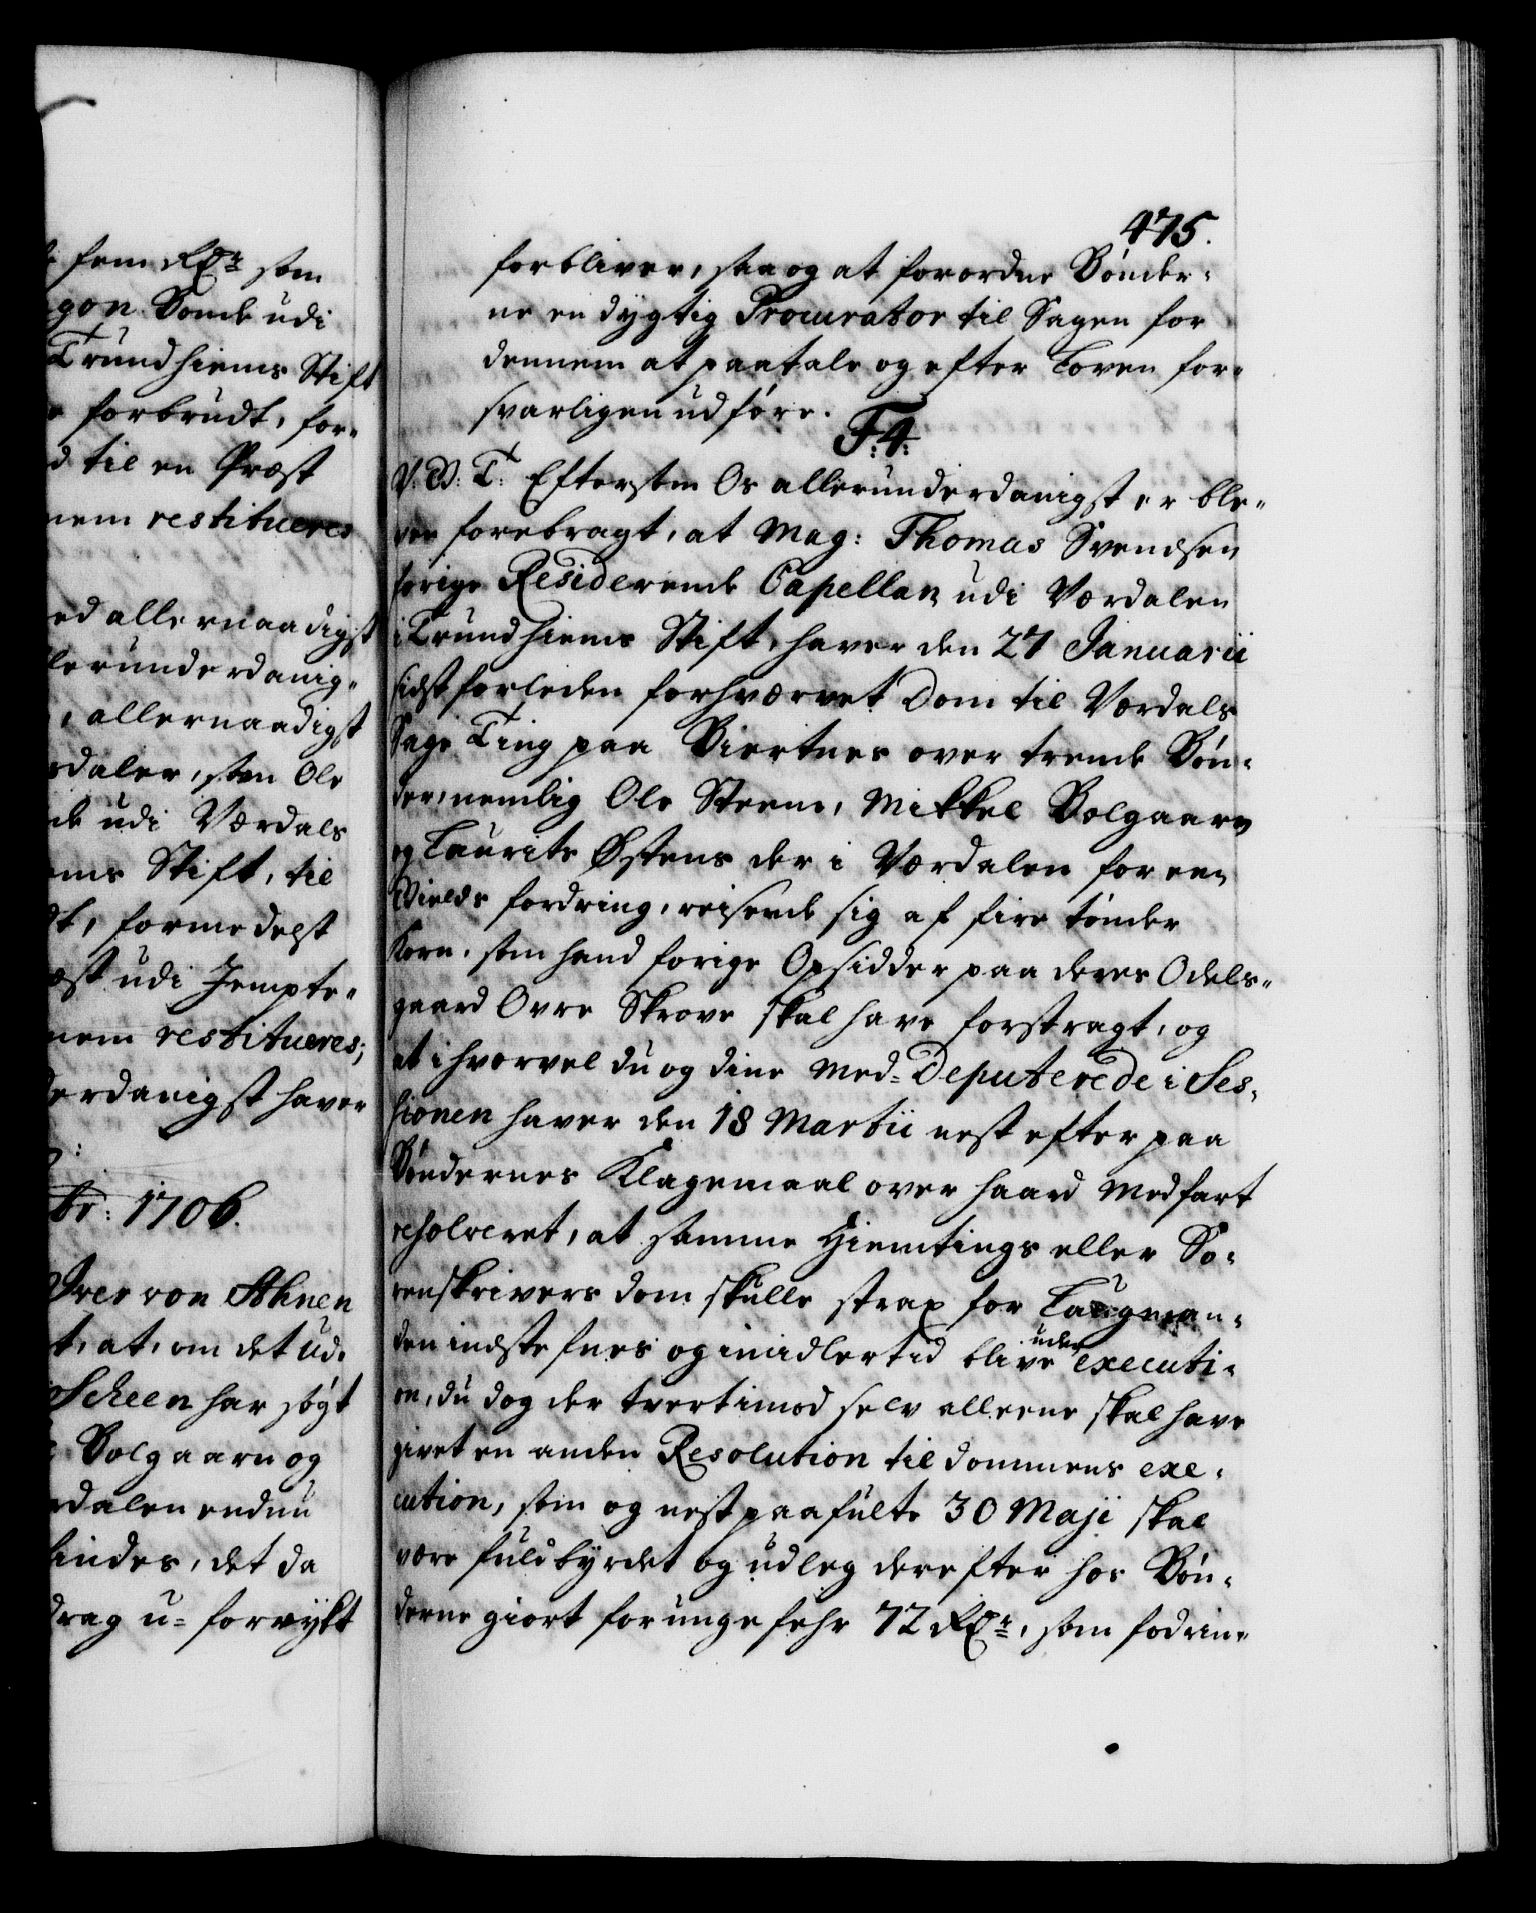 fem Rdr som
gon Bonde udi
Trundhiems Stift
forbrudt, for-
d til en Præst
nem restitueres
ed allernaadigst
lerunderdanig-
, allernaadigst
daler, som Ole
de udi Værdals
ems Stift, til
dt, formedelst
æst udi Jempte-
nem restitueres;
derdanigst haver
br: 1706.
Iver von Ahnen
t, at, om det ud-
Scheen har søgt
Bolgaarn og
rdalen endnu
findes, det da
drag u-forrykt
475.
forbliver, saa og at forordne Bønder-
ne en dygtig Procurator til Sagen for
dennem at paatale og efter Loven for-
svarligen udføre.
F: 4.
V. B: T: Eftersom Os allerunderdanigst er ble-
ven forebragt, at Mag: Thomas Svendsen
forige Residerende Capellan udi Værdalen
i Trundhiems Stift, haver den 27 Januarii
sidst forleden forhværvet Dom til Værdals
Sage Ting paa Biertnes over trende Bøn-
der, nemlig Ole Steene, Mikkel Bolgaarn
og Laurits Østens der i Værdalen for een
Gields fordring, reisende sig af fire tønder
Korn, som hand forige Opsidder paa deres Odels-
gaard Ovre Skrove skal have forstragt, og
at i hvorvel du og dine Med-Deputerede i Ses-
sionen haver den 18 Martii nest efter paa
Bøndernes Klagemaal over haard Medfart
resolveret, at samme Hiemtings eller So-
renskrivers dom skulle strax for Laugman-
den indstefnes og imidlertid blive uden executi-
on, du dog der tvertimod selv alleene skal have
givet en anden Resolution til dommens exe-
cution, som og nest paafulte 30 Maji skal
være fuldbyrdet og udleg derefter hos Bøn-
derne giort for ungefehr 72 Rdr, som fodrin-